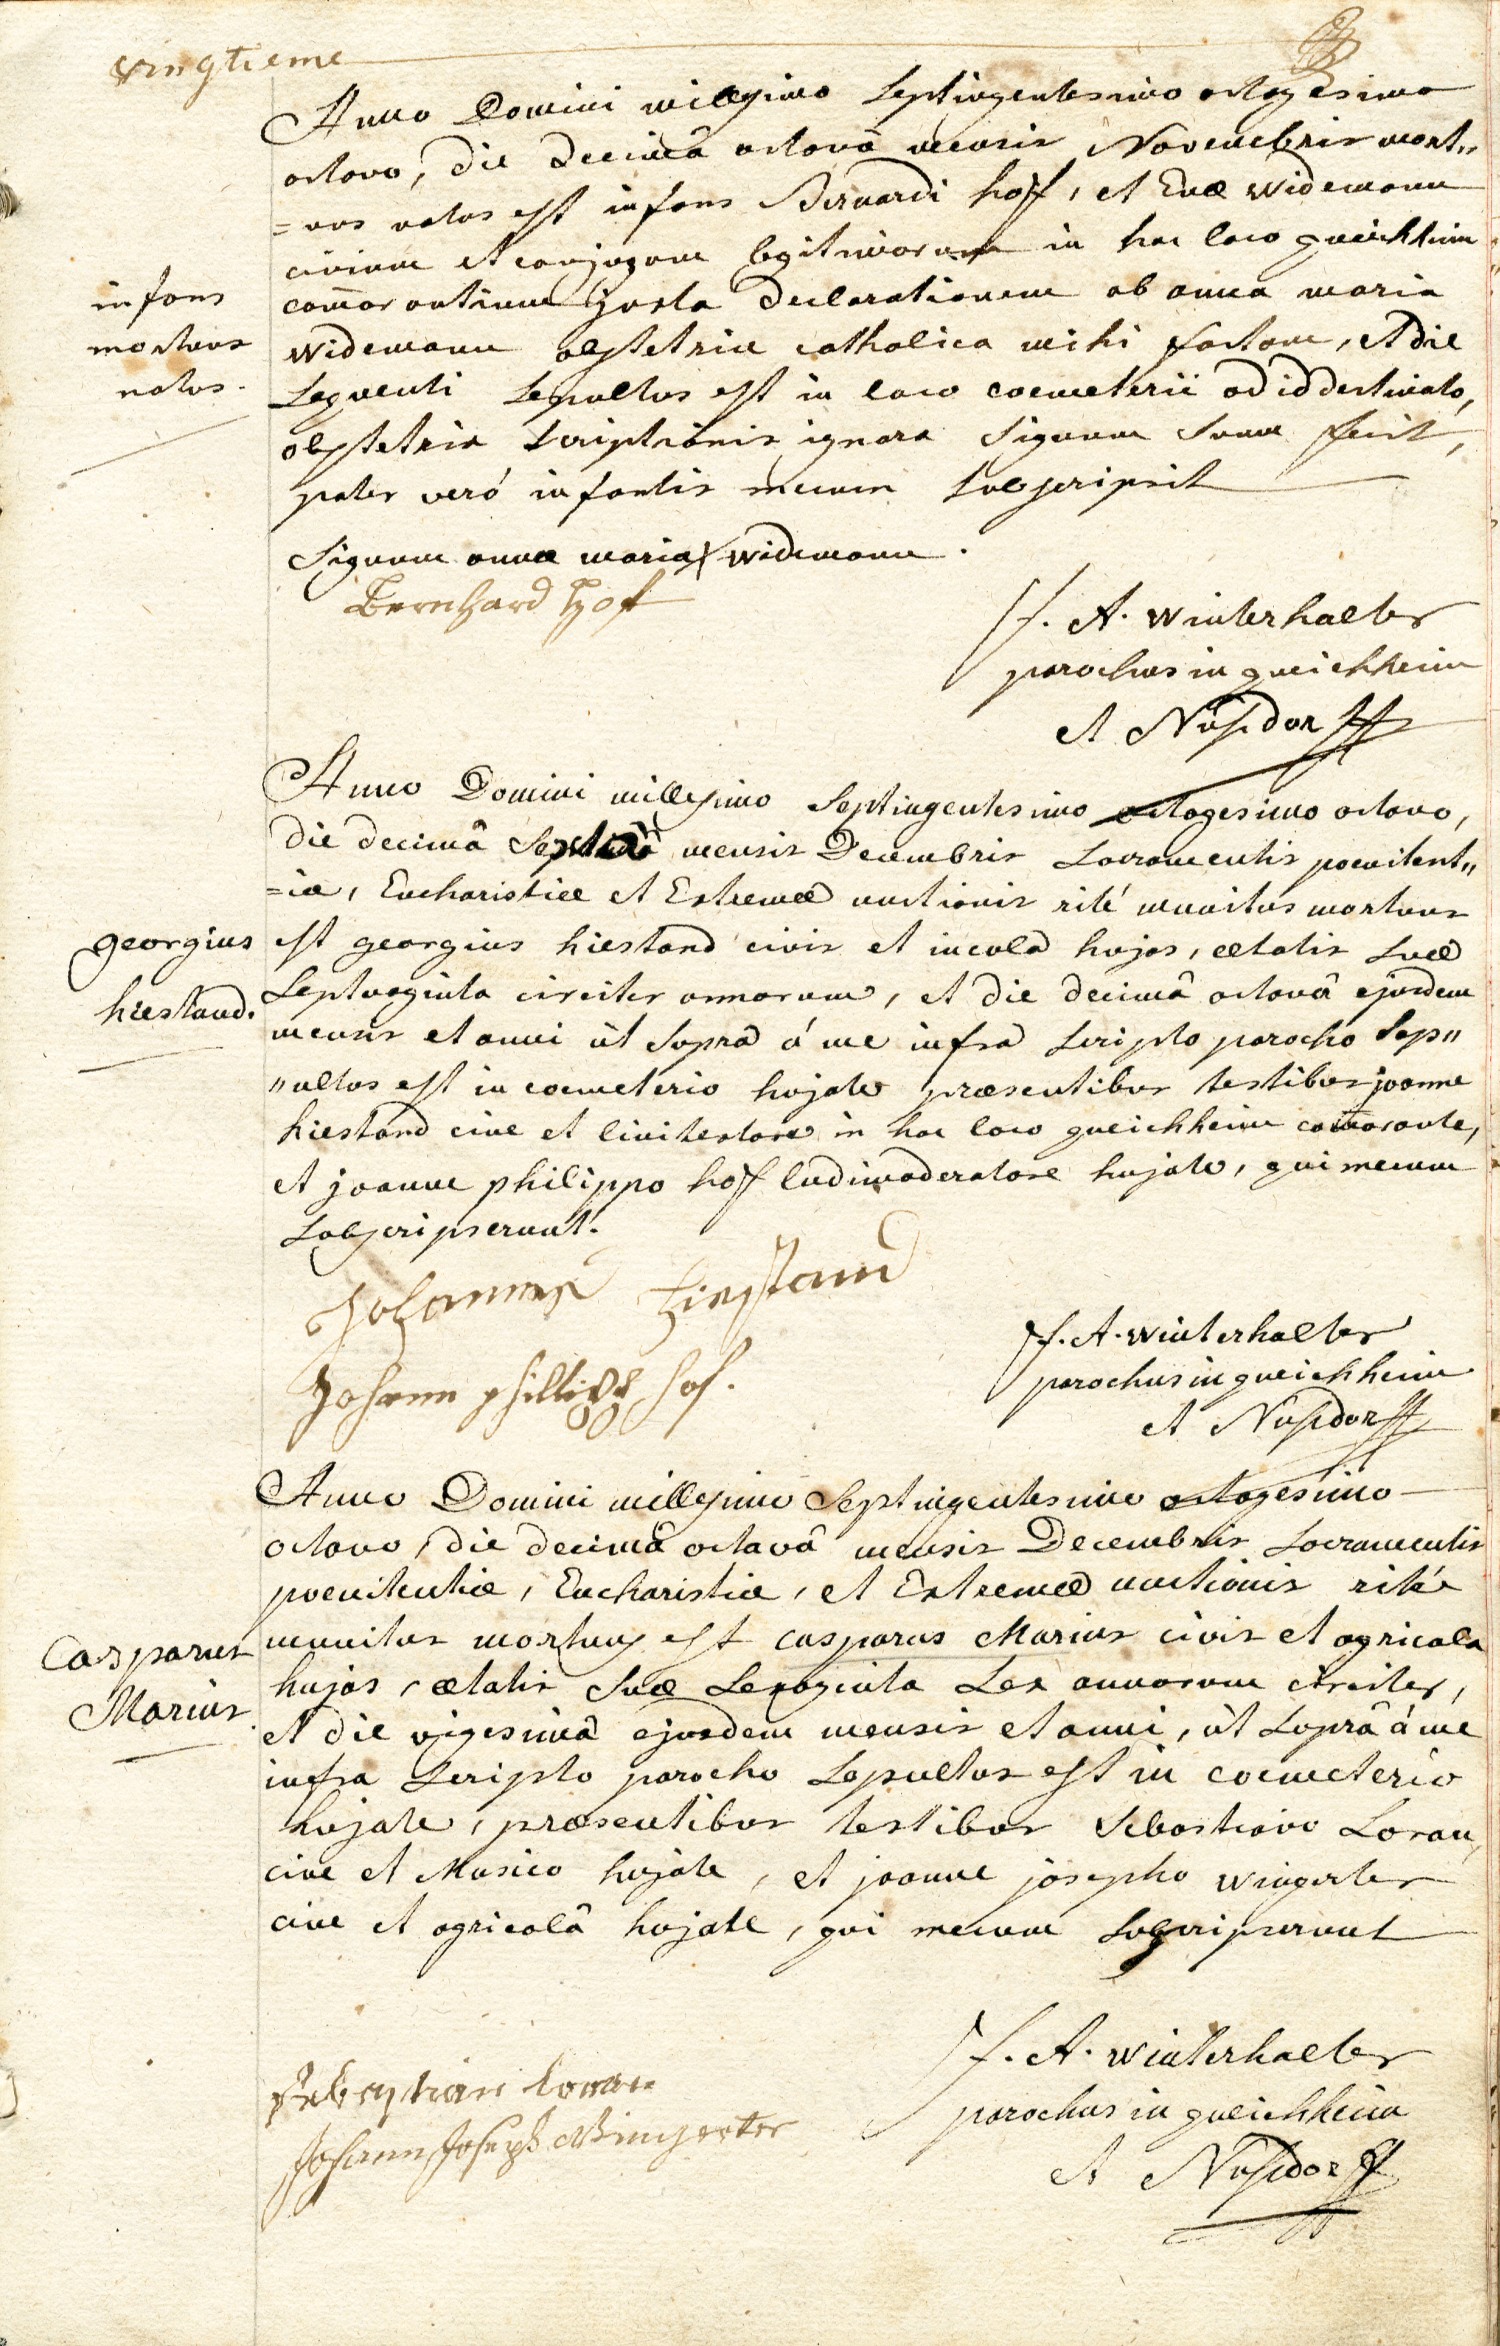 vingtieme
Anno Domini millesimo Septingentesimo octogesimo
octavo, die decimâ octavâ mensis Novembris mort„
=uus natus est infans Bernardi hoff, et Evæ Widemann
civium et conjugum legitimorum in hoc loco queichheim
com̄orantium juxta declarationem ab anna maria
infans
mortuus
natus.
Widemann obstetrice catholica mihi factam, et die
Sequenti Sepultus est in loco coemeterii ad id destinato,
obstetrix Scriptionis ignara Signum Suum fecit,
pater veró infantis mecum Subscripsit
Signum annæ mariæ x Widemann.
Bernhard Hof
f. A. Winterhalter
parochus in queichheim
et Nusdorff
Anno Domini millesimo Septingentesimo octogesimo octavo,
die decimâ mensis Decembris Sacramentis poenitent„
=iæ, Eucharistiæ et Extremæ unctionis rité munitus mortuus
georgius
hiestand.
est georgius hiestand civis et incola hujas, ætatis Suæ
Septuaginta circiter annorum, et die decimâ octavâ ejusdem
mensis et anni ùt Supra á me infra Scripto parocho Sep„
„ultus est in coemeterio hujate præsentibus testibus joanne
hiestand cive et linitextore in hoc loco queichheim com̄orante,
et joanne philippo hoff ludimoderatore hujate, qui mecum
Subscripserunt.
Johannes Hiestand
Johann phillipp Hof.
f. A. Winterhalter
parochus in queichheim
et Nusdorff
Anno Domini millesimo Septingentesimo octogesimo
octavo, die decimâ octavâ mensis Decembris Sacramentis
poenitentiæ, Eucharistiæ, et Extremæ unctionis rité
Casparus
Marius.
munitus mortuus est casparus Marius civis et agricola
hujas, ætatis Suæ Sexaginta Sex annorum circiter,
et die vigesimâ ejusdem mensis et anni, ùt Suprâ á me
infra Scripto parocho Sepultus est in coemeterio
hujate, præsentibus testibus Sebastiano Loran,
cive et Musico hujate, et joanne josepho Wingerter
cive et agricolâ hujate, qui mecum Subscripserunt
Sebastian Loran
Johann Joseph Wingerter
f. A. Winterhalter
parochus in queichheim
et Nusdorff